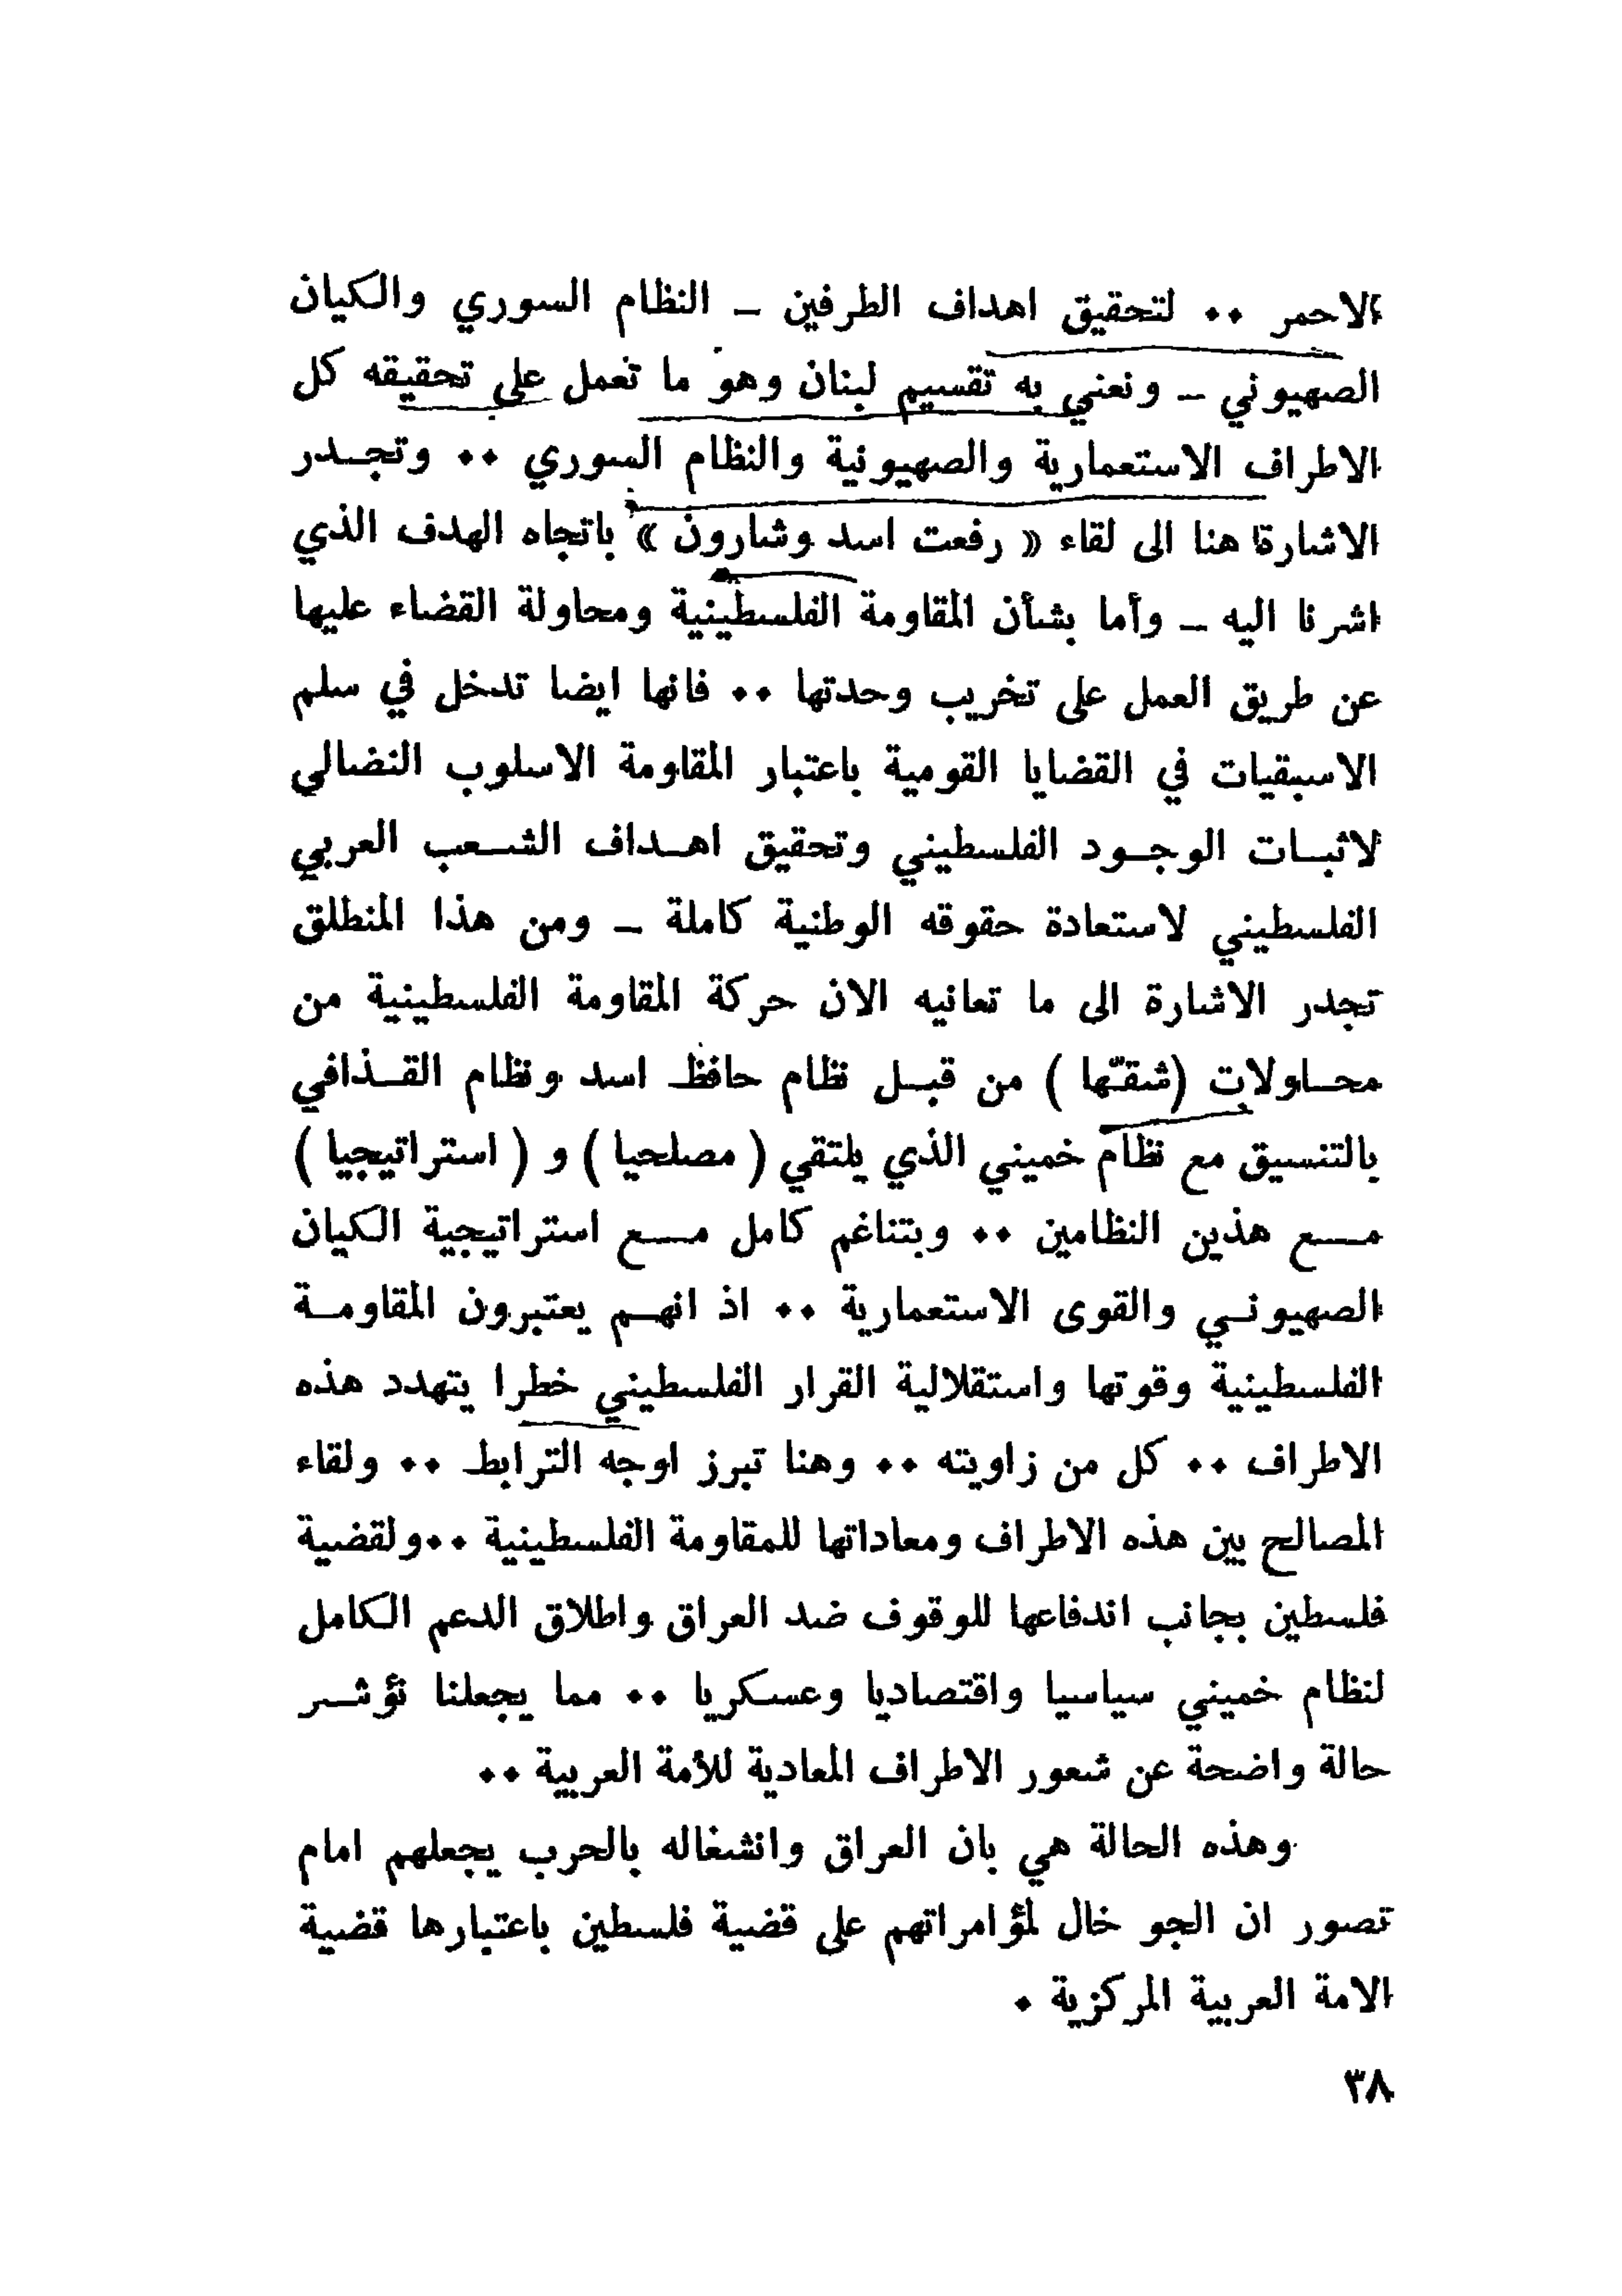 الاحمر ٠٠ لتحقيق اهداف الطرفين ـ النظام السوري والكيان
الصهيوني ـ ونعني به تقسيم لبنان وهو ما تعمل على تحقيقه كل
الاطراف الاستعمارية والصهيونية والنظام السوري ٠٠ وتجـدر
الاشارة هنا الى لقاء « رفعت اسد وشارون » باتجاه الهدف الذي
اشرنا اليه ـ وأما بشأن المقاومة الفلسطينية ومحاولة القضاء عليها
عن طريق العمل على تخريب وحدتها ٠٠ فانها ايضا تدخل في سلم
الاسبقيات في القضايا القومية باعتبار المقاومة الاسلوب النضالي
لاثبـات الوجـود الفلسطيني وتحقيق اهـداف الشـعب العربي
الفلسطيني لاستعادة حقوقه الوطنية كاملة ـ ومن هذا المنطلق
تجدر الاشارة الى ما تعانيه الان حركة المقاومة الفلسطينية من
محـاولات (شقـّها ) من قبـل نظام حافظ اسد ونظام القـذافي
بالتنسيق مع نظام خميني الذي يلتقي ( مصلحيا ) و ( استراتيجيا )
مـع هذين النظامين ٠٠ وبتناغم كامل مـع استراتيجية الكيان
الصهيونـي والقوى الاستعمارية ٠٠ اذ انهـم يعتبرون المقاومـة
الفلسطينية وقوتها واستقلالية القرار الفلسطيني خطرا يتهدد هذه
الاطراف ٠٠ كل من زاويته ٠٠ وهنا تبرز اوجه الترابط ٠٠ ولقاء
المصالح بين هذه الاطراف ومعاداتها للمقاومة الفلسطينية ٠٠ولقضية
فلسطين بجانب اندفاعها للوقوف ضد العراق واطلاق الدعم الكامل
لنظام خميني سياسيا واقتصاديا وعسكريا ٠٠ مما يجعلنا نؤشـر
حالة واضحة عن شعور الاطراف المعادية للأمة العربية ٠٠
وهذه الحالة هي بان العراق وانشغاله بالحرب يجعلهم امام
تصور ان الجو خال لمؤامراتهم على قضية فلسطين باعتبارها قضية
الامة العربية المركزية ٠
٣٨